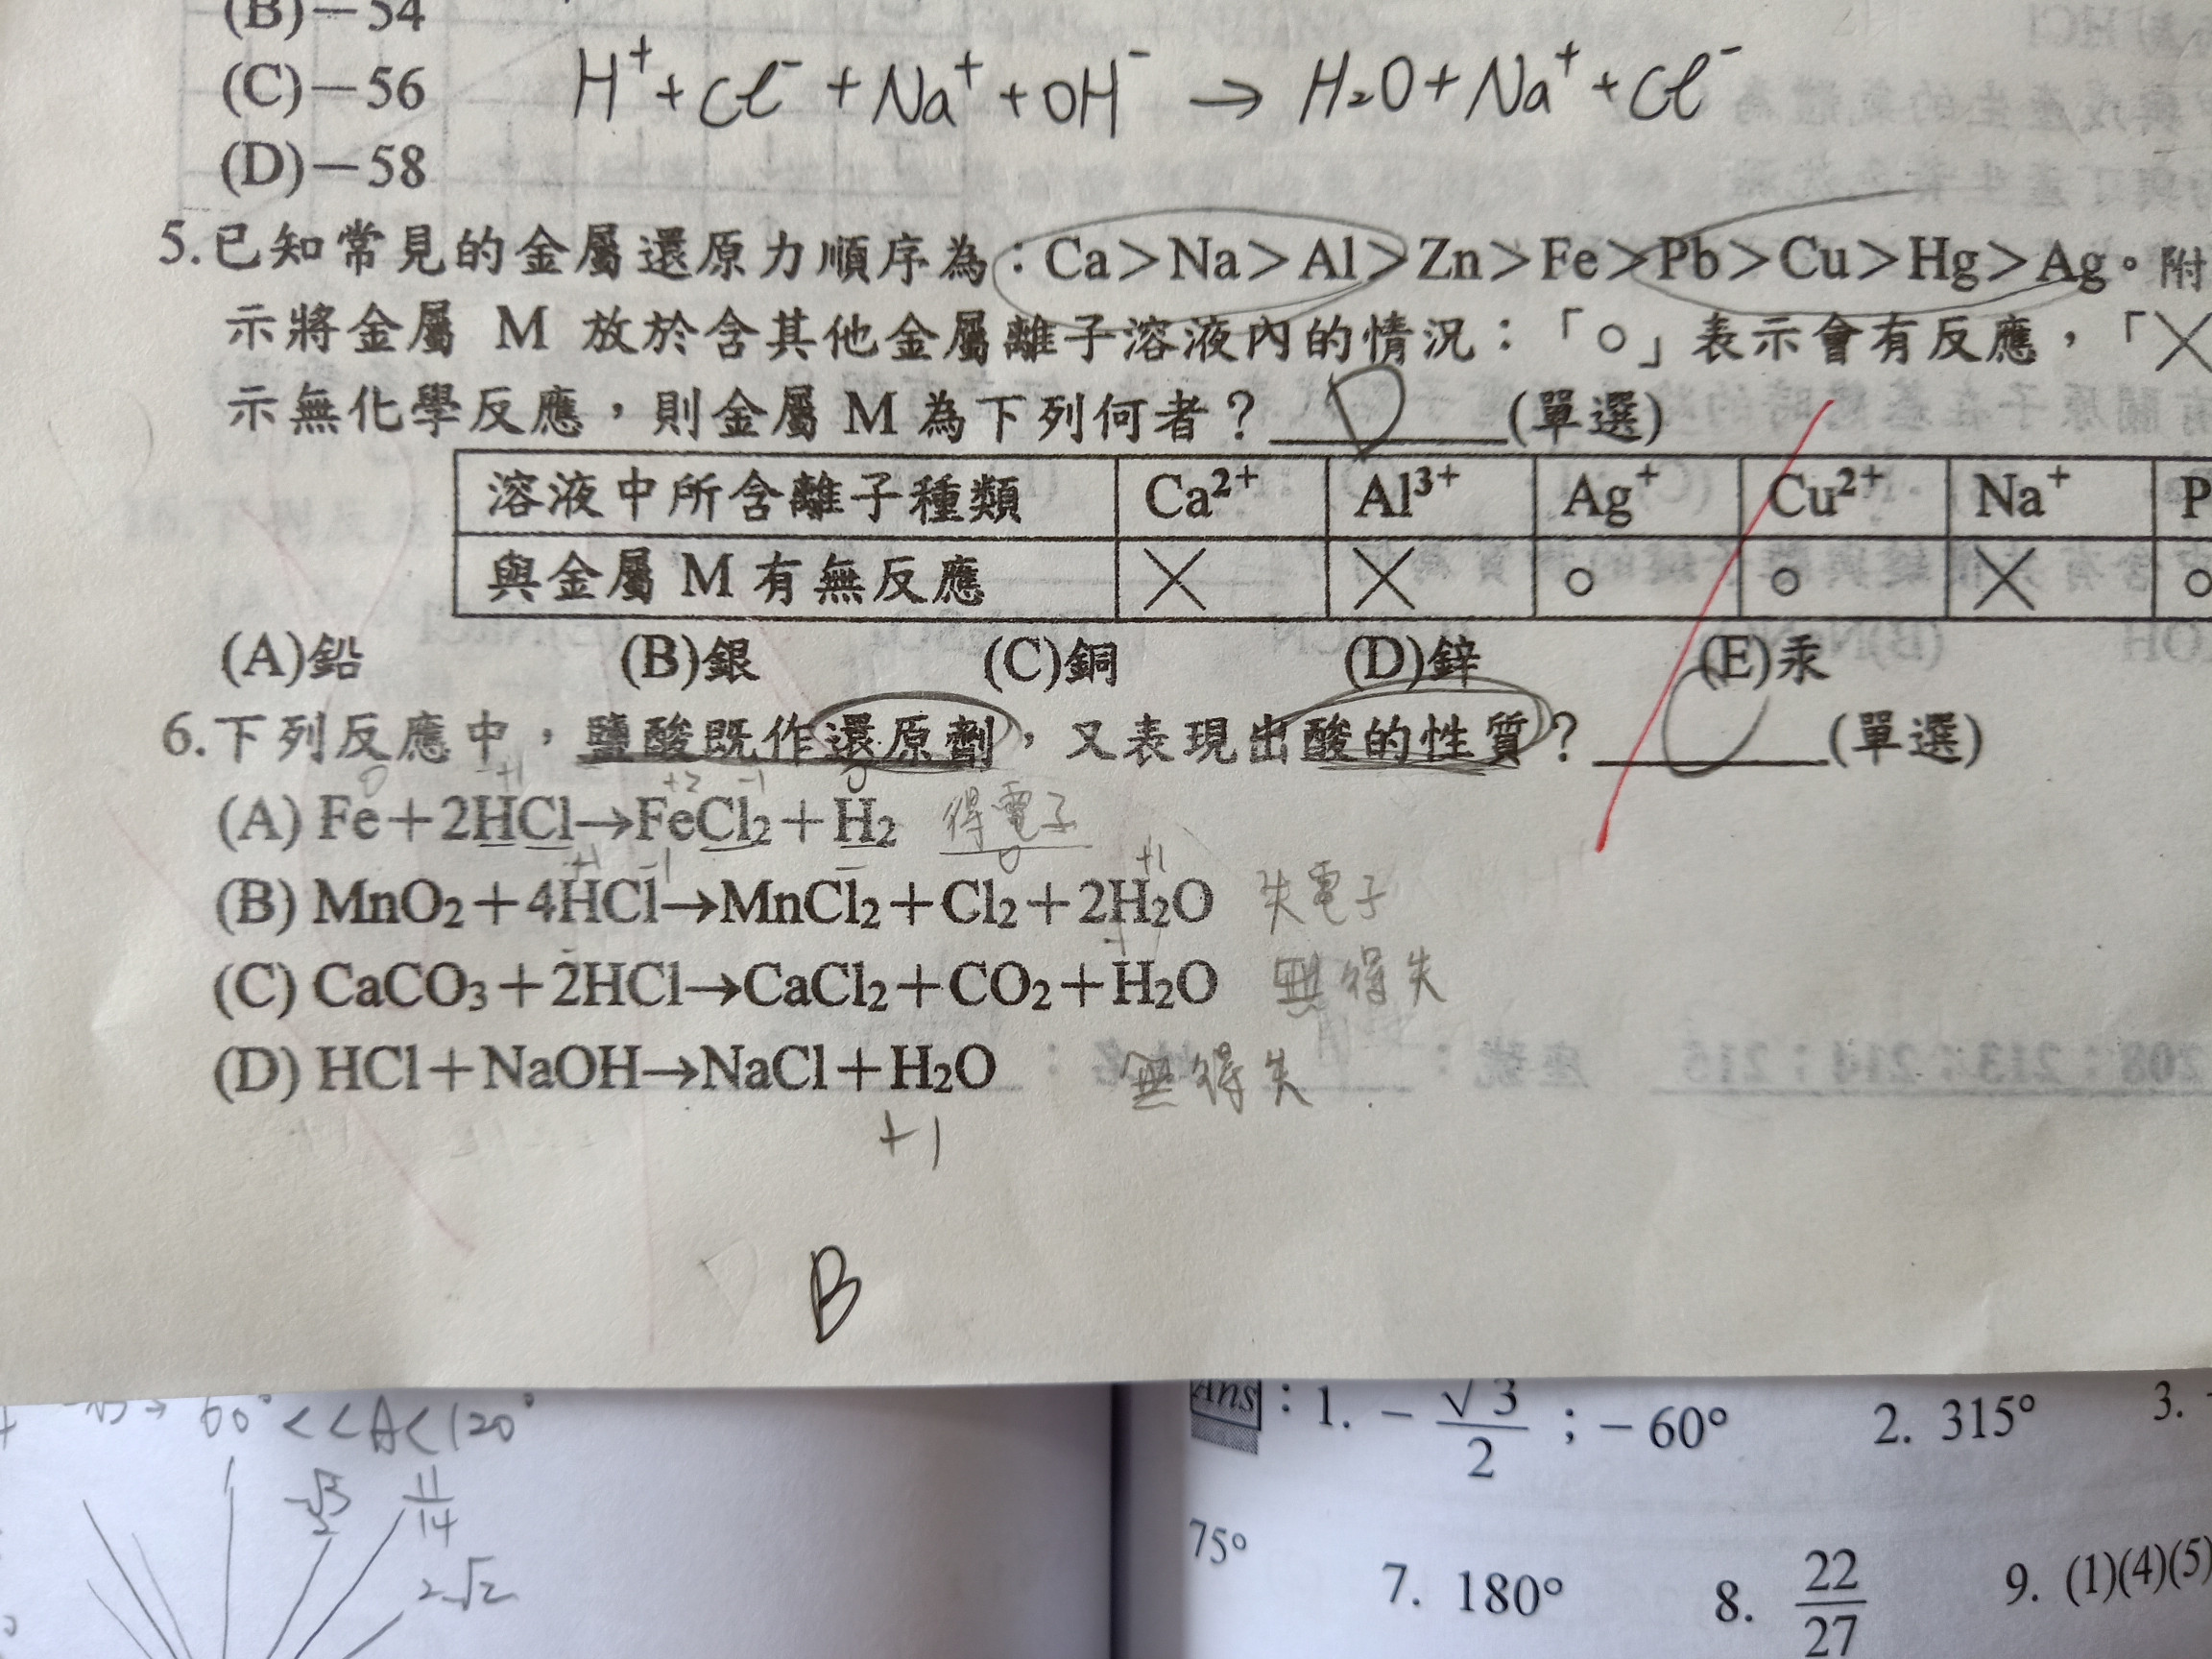 (B)－54
(C)－56
H⁺ + Cl⁻ + Na⁺ + OH⁻ → H₂O + Na⁺ + Cl⁻
(D)－58
5.已知常見的金屬還原力順序為：Ca＞Na＞Al＞Zn＞Fe＞Pb＞Cu＞Hg＞Ag。附
示將金屬 M 放於含其他金屬離子溶液內的情況：「○」表示會有反應，「╳
示無化學反應，則金屬 M 為下列何者？ D (單選)
溶液中所含離子種類 Ca²⁺ Al³⁺ Ag⁺ Cu²⁺ Na⁺ P
與金屬 M 有無反應 ╳ ╳ ○ ○ ╳ ○
(A)鉛 (B)銀 (C)銅 (D)鋅 (E)汞
6.下列反應中，鹽酸既作還原劑，又表現出酸的性質？ (單選)
0 +1 +2 -1 0
(A) Fe＋2HCl→FeCl₂＋H₂ 得電子
+1 -1 0 +1
(B) MnO₂＋4HCl→MnCl₂＋Cl₂＋2H₂O 失電子
(C) CaCO₃＋2HCl→CaCl₂＋CO₂＋H₂O 無得失
(D) HCl＋NaOH→NaCl＋H₂O 無得失
+1
B
60°<∠A<120°
Ans：1. －√3/2；－60° 2. 315° 3.
11/14
2√2
75°
7. 180° 8. 22/27 9. (1)(4)(5)